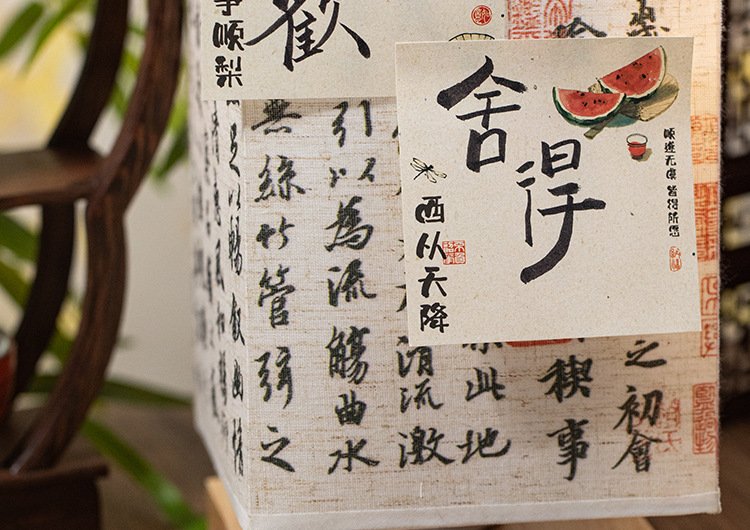 舍得
西从天降
顺遂无虞 皆得所愿
歡
事順梨
之初會
稧事
此地
清流激
引以為流觴曲水
無絲竹管弦之
足以暢敘幽情